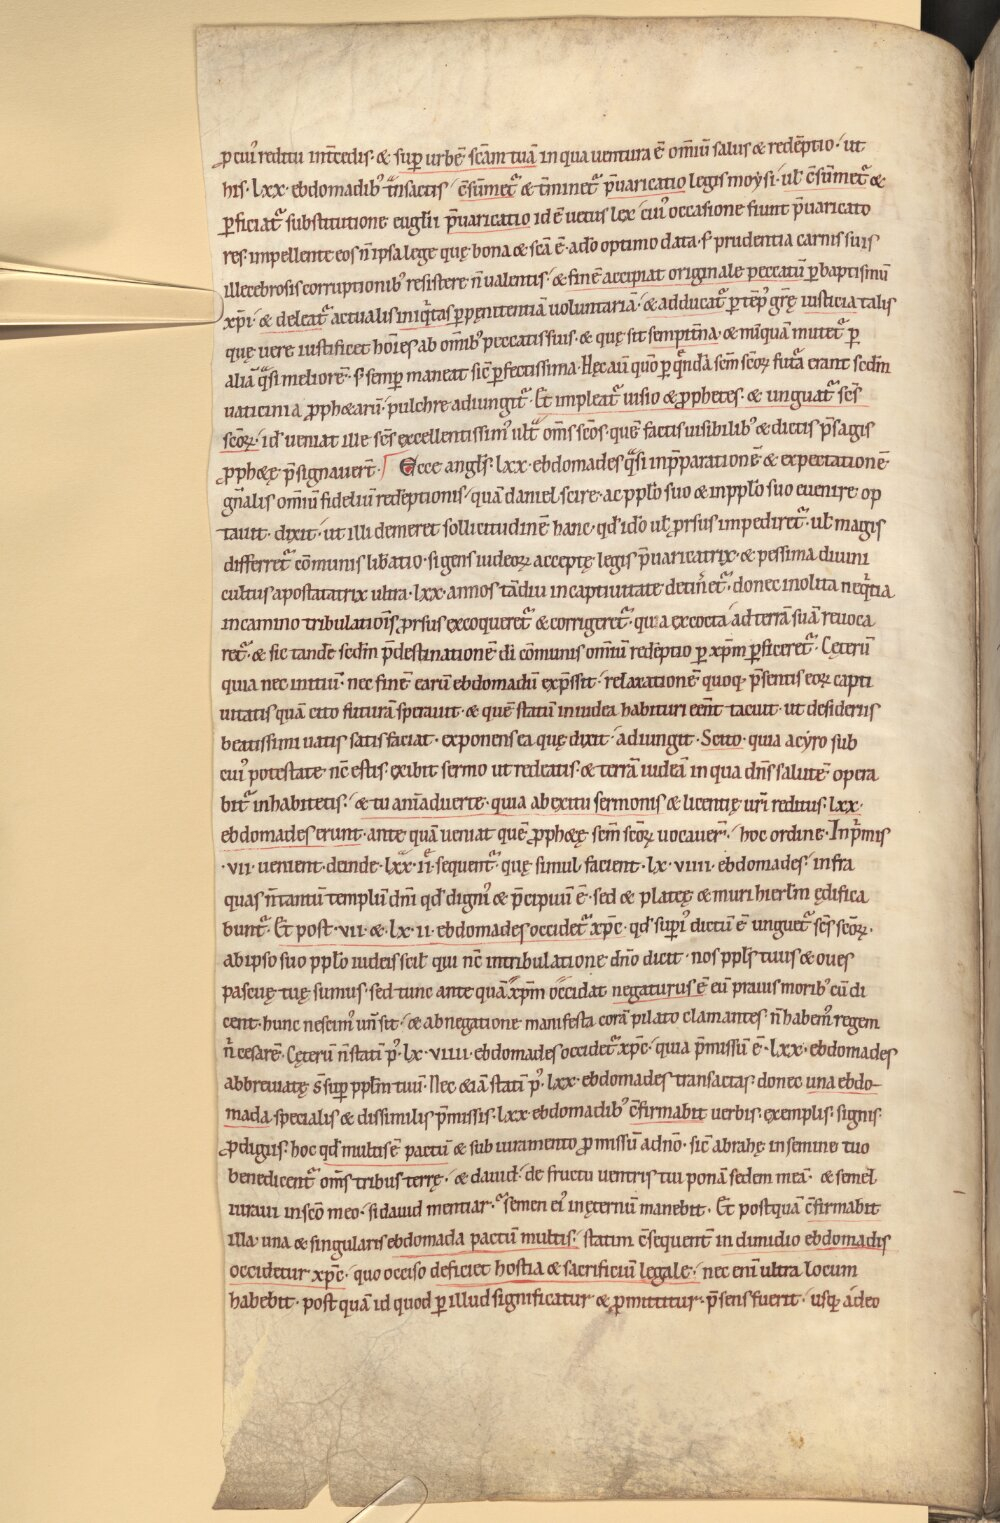 ꝓ cuiꝰ reditu int̄cedis· & suꝑ urbē sc̄am tuā in qua uentura ē omniū salus & redēptio· ut
his· lxx· ebdomadibꝰ tͣnsactis c̄sūmetᷣ & t̄minetᷣ p̄uaricatio legis moysi· ul̄ c̄sūmetᷣ &
ꝑficiatᷣ substitutione euglīi p̄uaricatio id ē uetus lex cuiꝰ occasione fiunt p̄uaricato
res· impellente eos n̄ ipsa lege quę bona & sc̄a ē· a dō optimo data· s; prudentia carnis suis
illecebrosis corruptionibꝰ resistere n̄ ualentis· & finē accipiat originale peccatū ꝑ baptismū
xp̄i· & deleatᷣ actualis iniqͥtas ꝑ pęnitentiā uoluntariā· & adducatᷣ ꝑ tēpꝰ grę̄ iusticia talis
quę uere iustificet hōies ab om̄ibꝰ peccatis suis· & quę sit sempit̄na· & nūquā mutetᷣ ꝑ
aliā qͣsi meliorē· s; semꝑ maneat sic̄ ꝑfectissima· Hęc aūt quō ꝑ qͥndā sc̄m sc̄oꝝ futͣa erant scdm̄
uaticinia ꝓph&arū· pulchre adiungitᷣ· Et impleatᷣ uisio & ꝓphetes· & unguatᷣ sc̄s
sc̄oꝝ· id ueniat ille sc̄s excellentissimꝰ ultͣ om̄s sc̄os· quē factis uisibilibꝰ & dictis p̄sagis
ꝓph&ę p̄signauert̄· Ecce angl̄s· lxx· ebdomades qͣsi in p̄parationē & expectationē
gn̄alis omniū fideliū redēptionis quā daniel scire· ac ppl̄o suo & in ppl̄o suo euenire op
tauit· dixit· ut illi demeret sollicitudinē hanc· qd̄ idō ul̄ ꝓrsus impediretᷣ· ul̄ magis
differretᷣ cōmunis lib̄atio· si gens iudeoꝝ acceptę legis p̄uaricatrix· & pessima diuini
cultus apostatatrix ultra· lxx· annos tādiu in captiuitate detin̄etᷣ· donec inolita neqͥtia
in camino tribulatiōis ꝓrsus excoqueretᷣ & corrigeretᷣ· quia excocta ad terrā suā reuoca
retᷣ· & sic tandē scdm̄ p̄destinationē di cōmunis omniū redēptio ꝑ xp̄m ꝑficeretᷣ· Cęterū
quia nec initiū· nec finē earū ebdomadū exp̄ssit· relaxationē quoqꝫ p̄sentis eoꝝ capti
uitatis quā cito futurā sperauit· & quē statū in iudea habituri eēnt tacuit· ut desideriis
beatissimi uatis satis faciat· exponens ea quę dixit· adiungit· Scito· quia a cyro sub
cuiꝰ potestate nc̄ estis· exibit sermo ut redeatis· & terrā iudeā in qua dn̄s salutē opera
bitᷣ inhabitetis· & tu aniāduerte· quia ab exitu sermonis & licentię urī reditus· lxx·
ebdomades erunt· ante quā ueniat quē ꝓph&ę sc̄m sc̄oꝝ uocauer̄· hoc ordine· In pͥmis
·vii· uenient· deinde· lxͣx ·ii· sequentᷣ· quę simul facient· lx· viiii· ebdomades· infra
quas n̄ tantū templū dn̄i qd̄ dignꝰ & p̄cipuū ē· sed & platęę & muri hierl̄m ędifica
buntᷣ· Et post· vii· & ·lx· ii· ebdomades occidetᷣ xp̄c· qd̄ suꝑiꝰ dictū ē unguetᷣ sc̄s sc̄oꝝ·
ab ipso suo ppl̄o iudeis scil̄ qui nc̄ in tribulatione dn̄o dicit· nos ppl̄s tuus & oues
pascuę tuę sumus· sed tunc ante quā xp̄m occidat negaturus ē eū prauis moribꝰ cū di
cent· hunc nescimꝰ un̄ sit· & abnegatione manifesta corā pilato clamantes n̄ habemꝰ regem
nͥ cesarē· Cęterū n̄ statī pꝰ· lx· viiii· ebdomades occidetᷣ xp̄c· quia p̄missū ē· lxx· ebdomades
abbreuiatę s̄ suꝑ ppl̄m tuū· Nec &iā statī pꝰ· lxx· ebdomades transactas· donec una ebdo-
mada specialis & dissimilis p̄missis· lxx ebdomadibꝰ c̄firmabit uerbis· exemplis· signis·
ꝓdigiis· hoc qd̄ multis ē pactū & sub iuramento ꝓmissū a dn̄o· sic̄ abrahę in semine tuo
benedicentᷣ om̄s tribus terrę· & dauid· de fructu uentris tui ponā sedem meā· & semel
iuraui in sc̄o meo· si dauid mentiar· semen eiꝰ in ęternū manebit· Et postquā c̄firmabit
illa una & singularis ebdomada pactū multis· statim c̄sequent̄ in dimidio ebdomadis
occidetur xp̄c· quo occiso deficiet hostia & sacrificiū legale· nec enī ultra locum
habebit· post quā id quod ꝑ illud significatur & ꝓmittitur· p̄sens fuerit· usqꝫ adeo